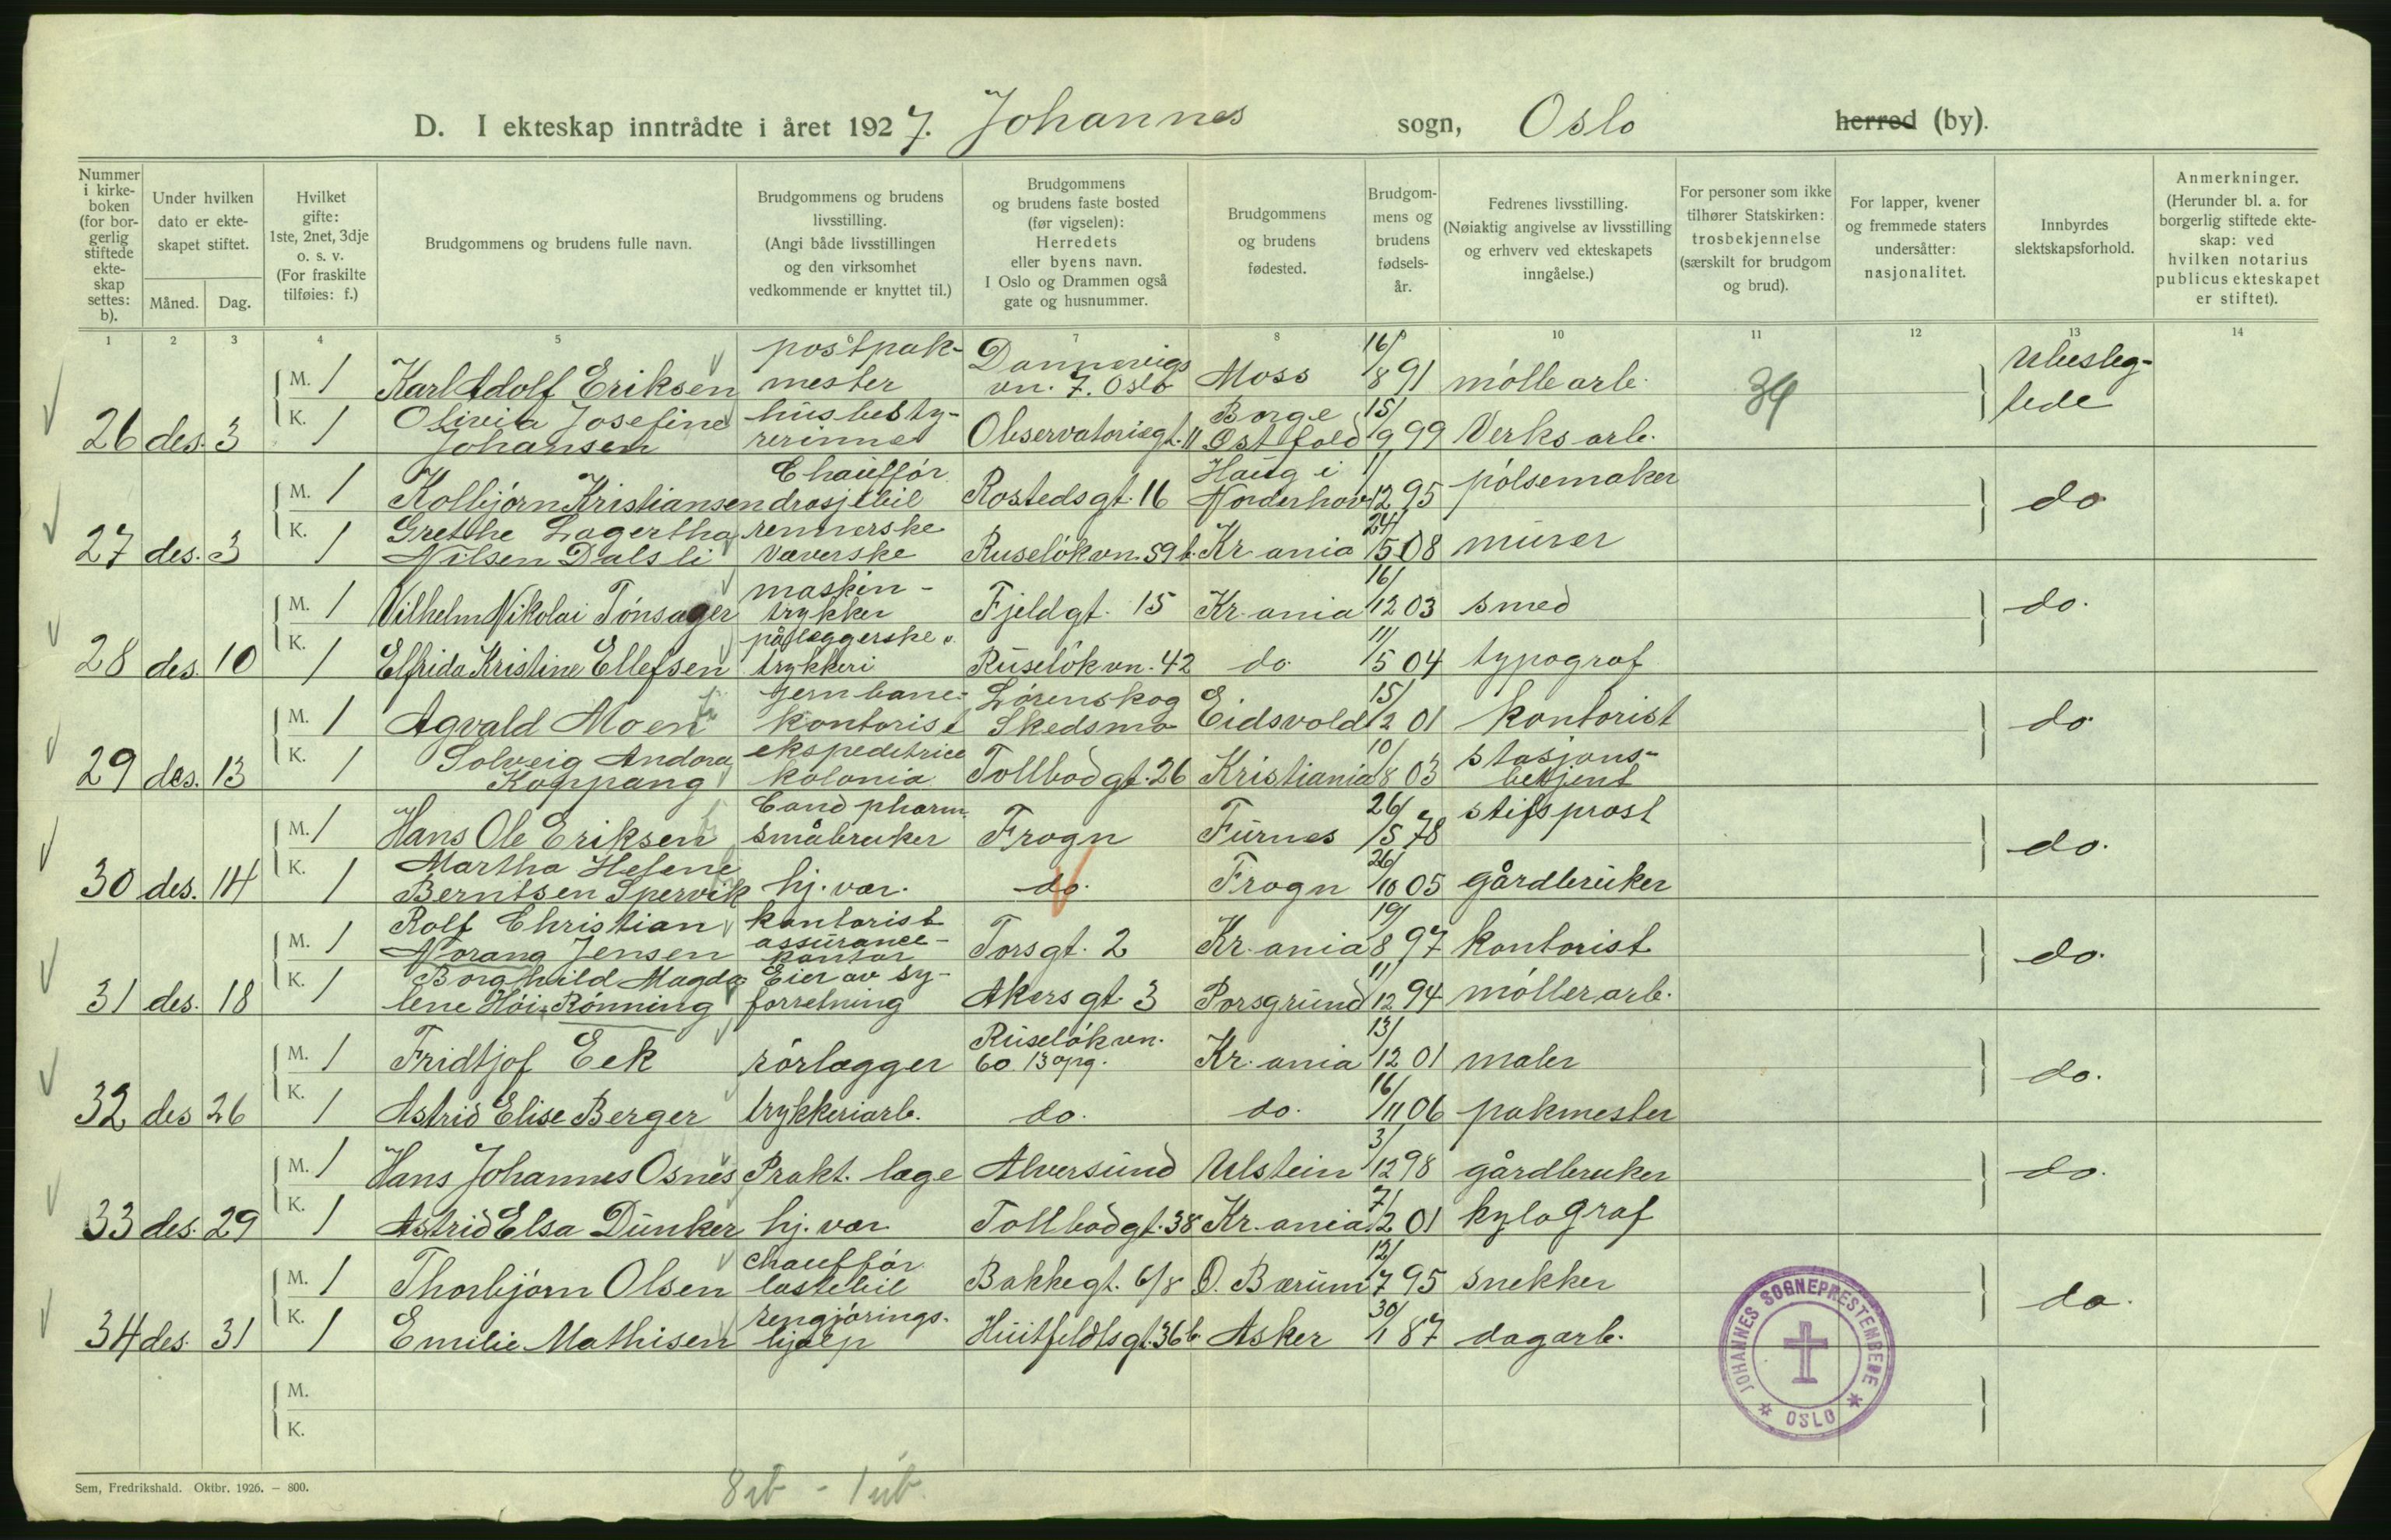 D. I ekteskap inntrådte i året 1927. Johannes sogn, Oslo herred (by).
Nummer i kirke-boken (for bor-gerlig stiftede ekte-skap settes: b).
Under hvilken dato er ekte-skapet stiftet.
Måned. Dag.
Hvilket gifte: 1ste, 2net, 3dje o. s. v. (For fraskilte tilføies: f.)
Brudgommens og brudens fulle navn.
Brudgommens og brudens livsstilling. (Angi både livsstillingen og den virksomhet vedkommende er knyttet til.)
Brudgommens og brudens faste bosted (før vigselen): Herredets eller byens navn. I Oslo og Drammen også gate og husnummer.
Brudgommens og brudens fødested.
Brudgom-mens og brudens fødsels-år.
Fedrenes livsstilling. (Nøiaktig angivelse av livsstilling og erhverv ved ekteskapets inngåelse.)
For personer som ikke tilhører Statskirken: trosbekjennelse (særskilt for brudgom og brud).
For lapper, kvener og fremmede staters undersåtter: nasjonalitet.
Innbyrdes slektskapsforhold.
Anmerkninger. (Herunder bl. a. for borgerlig stiftede ekte-skap: ved hvilken notarius publicus ekteskapet er stiftet).
1 2 3 4 5 7 8 10 11 12 13 14
M. 1 Karl Adolf Eriksen postpak-mester Dannevigs vn. 7. Oslo Moss 16/8 91 møllearb. 34 Ubesleg-tede
26 des. 3 K. 1 Olivia Josefine Johansen husbesty-rerinne Observatoriegt. 11 Borge Østfold 15/9 99 Verksarb.
M. 1 Kolbjørn Kristiansen Chauffør drosjebil Rostedsgt. 16 Haug i Norderhov 1/12 95 pølsemaker do
27 des. 3 K. 1 Grethe Lagertha Nilsen Dalsli rennerske Væverske Ruseløkvn. 59 b. Kr.ania 24/5 08 murer
M. 1 Vilhelm Nikolai Tønsager maskin-trykker Fjeldgt. 15 Kr.ania 16/12 03 smed do.
28 des. 10 K. 1 Elfrida Kristine Ellefsen påleggerske v. trykkeri Ruseløkvn. 42 do. 11/5 04 typograf
M. 1 Agvald Moen jernbane-kontorist Lørenskog Skedsmo Eidsvold 15/2 01 kontorist do
29 des. 13 K. 1 Solveig Andora Koppang ekspeditrice kolonia Tollbodgt. 26 Kristiania 10/8 03 stasjons-betjent
M. 1 Hans Ole Eriksen Cand pharm. småbruker Frogn Furnes 26/5 78 stiftsprost do.
30 des. 14 K. 1 Martha Helene Berntsen Spervik hj. vær. do. Frogn 26/10 05 gårdbruker
M. 1 Rolf Christian Norang Jensen kontorist assurance-kontor Torsgt. 2 Kr.ania 19/8 97 kontorist do.
31 des. 18 K. 1 Borghild Magda lene Høi Rønning Eier av sy-forretning Akersgt. 3 Porsgrund 11/12 94 møllerarb.
M. 1 Fridtjof Eek rørlægger Ruseløkvn. 60 13 opg. Kr.ania 13/12 01 maler do.
32 des 26 K. 1 Astrid Elise Berger trykkeriarb. do. do. 16/11 06 pakmester
M. 1 Hans Johannes Osnes Prakt. læge Alversund Ulstein 3/12 98 gårdbruker do.
33 des. 29 K. 1 Astrid Elsa Dunker hj. vær Tollbodgt. 38 Kr.ania 7/2 01 kylograf
M. 1 Thorbjørn Olsen chauffør lastebil Bakkegt. 6/8 Ø. Bærum 12/7 95 snekker do.
34 des. 31 K. 1 Emilie Mathisen rengjørings-hjælp Huitfeldtsgt. 36 b Asker 30/1 87 dagarb.
M.
K.
JOHANNES SOGNEPRESTEMBEDE
OSLO
Sem, Fredrikshald. Oktbr. 1926. – 800.
8 ub - 1 ub.